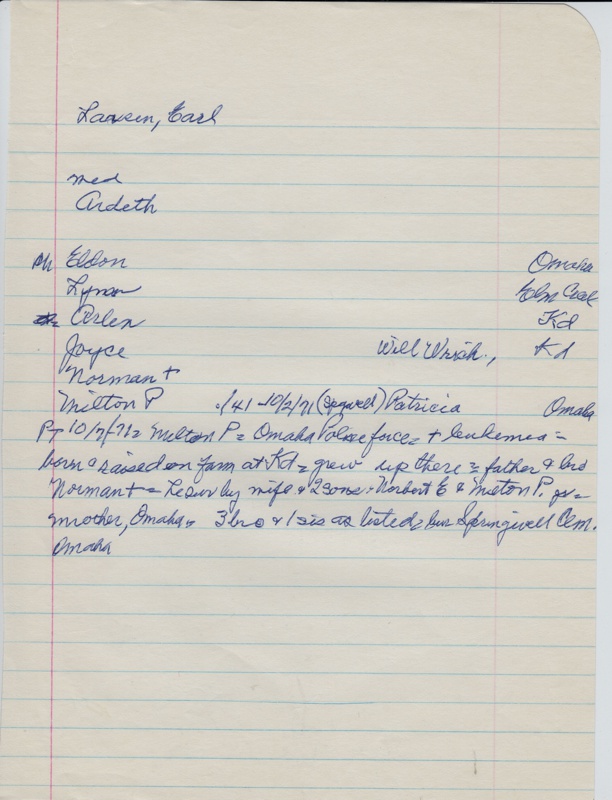 Larsen, Carl
med
Ardeth
Eldon Omaha
Lyman
Arlen Kd
Joyce Will Kd
Norman +
Milton P ./41-10/2/71 (Spgwell) Patricia Omaha
PT 10/7/71= Milton P= Omaha Police force= + leukemia=
born & raised on farm at Kd= grew up there= father & bro
Norman += He sur by wife & 2 sons- Norbert E & Milton P. Jr=
mother, Omaha, 3 bro & 1 sis as listed= bur Springwell Cem.
Omaha